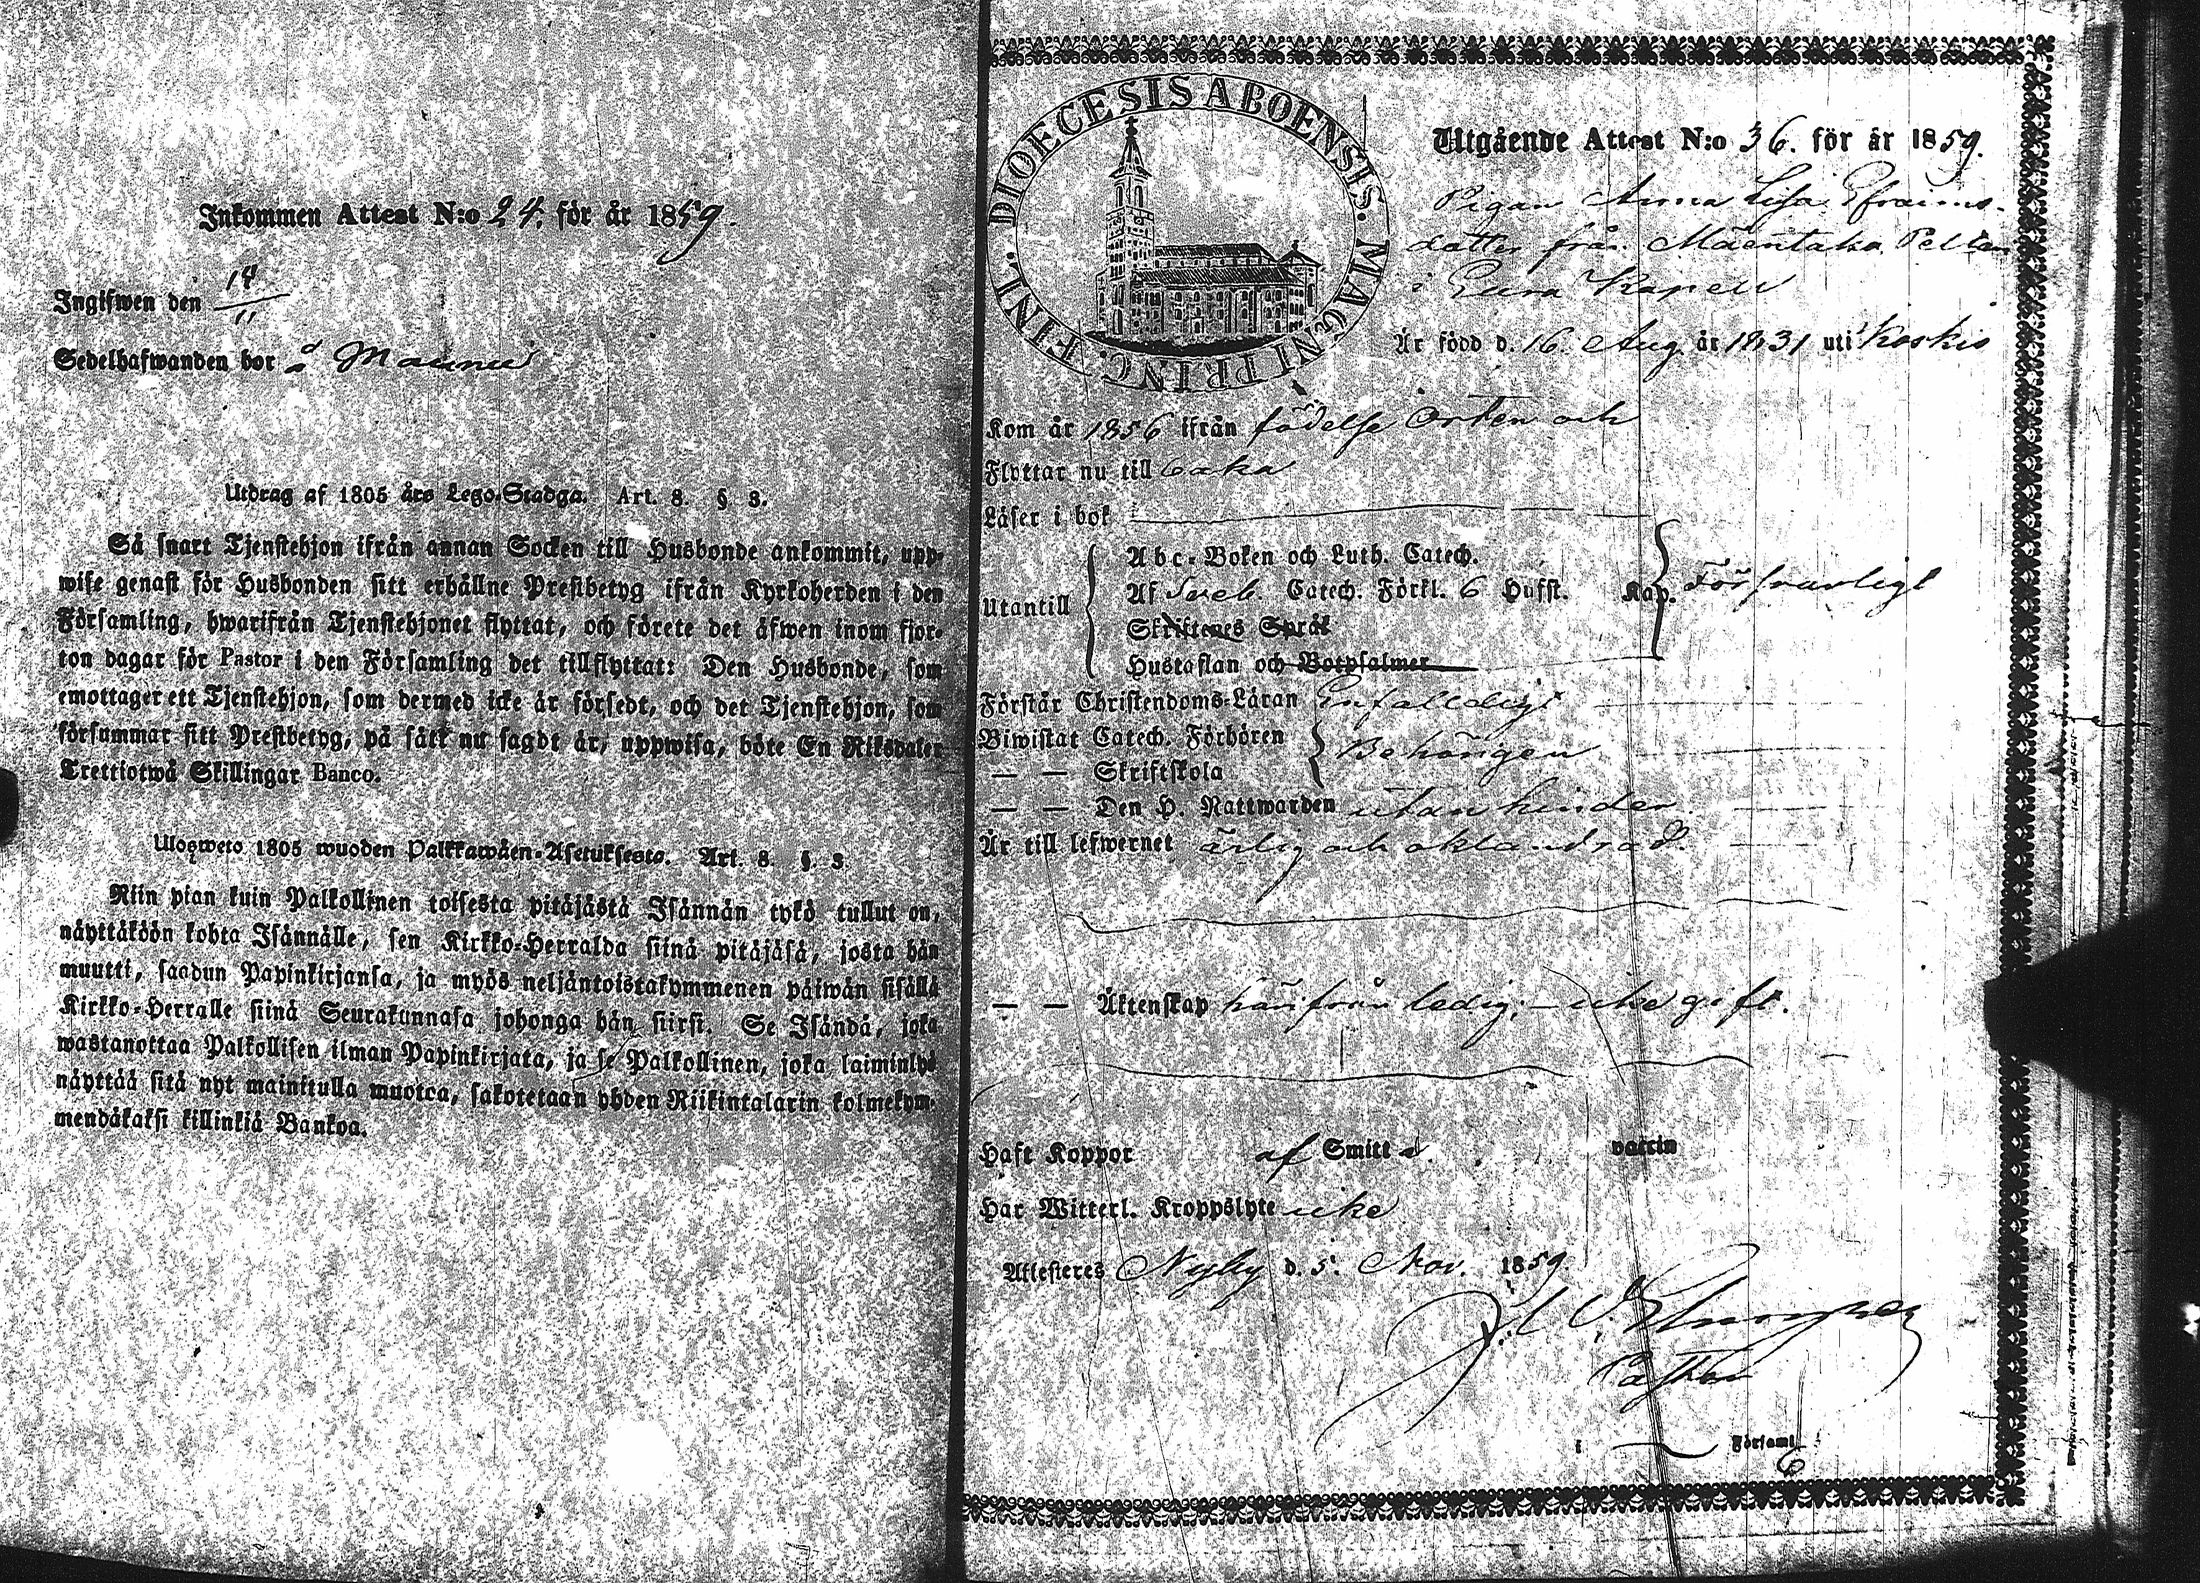 Inkommen Attest N:o 24. för år 1859.
Ingifwen den 14/11
Sedelhafwanden bor å Maunu
Utdrag af 1805 års Lego-Stadga. Art. 8. § 3.
Så snart Tjenstehjon ifrån annan Socken till Husbonde ankommit, upp-
wise genast för Husbonden sitt erhållne Prestbetyg ifrån Kyrkoherden i den
Församling, hwarifrån Tjenstehjonet flyttat, och förete det äfwen inom fjor-
ton dagar för Pastor i den Församling det tillflyttat: Den Husbonde, som
emottager ett Tjenstehjon, som dermed icke är försedt, och det Tjenstehjon, som
försummar sitt Prestbetyg, på sätt nu sagdt är, uppwisa, böte En Riksdaler
Trettiotwå Skillingar Banco.
Ulosweto 1805 wuoden Palkkawäen-Asetuksesta. Art. 8. §. 3
Niin pian kuin Palkollinen toisesta pitäjästä Isännän tykö tullut on,
näyttäköön kohta Isännälle, sen Kirkko-Herralda siinä pitäjäsä, josta hän
muutti, saadun Papinkirjansa, ja myös neljäntoistakymmenen päiwän sisällä
Kirkko-Herralle siinä Seurakunnasa johonga hän siirsi. Se Isändä, joka
wastanottaa Palkollisen ilman Papinkirjata, ja se Palkollinen, joka laiminlyö
näyttää sitä nyt mainitulla muotoa, sakotetaan yhden Riikintalarin kolmekym-
mendäkaksi killinkiä Bankoa.
DIOECESIS ABOENSIS. MAGNI PRINC. FINL.
Utgående Attest N:o 36. för år 1859.
Pigan Anna Lisa Efraims-
dotter från Mäentaka Pellan
i Eura Kapell
Är född d. 16. Aug. år 1831 uti Koskis
Kom år 1856 ifrån födelse orten och
Flyttar nu till baka
Läser i bok
Abc-Boken och Luth. Catech.
Utantill Af Sveb. Catech. Förkl. 6 Hufst. Kap. Försvarligt
Skriftenes Språk
Hustaflan och Botpsalmer
Förstår Christendoms-Läran Enfalldigt
Biwistat Catech. Förhören Behörigen
— — Skriftskola
— — Den H. Nattwarden utan hinder
Är till lefwernet ärlig och oklandrad.
— — Äktenskap härifrån ledig; - icke gift.
Haft Koppor af Smitta. vaccin
Har Witterl. Kroppslyte icke
Attesteres Nyby d. 5. Nov. 1859.
Pastor
i Församl.
6